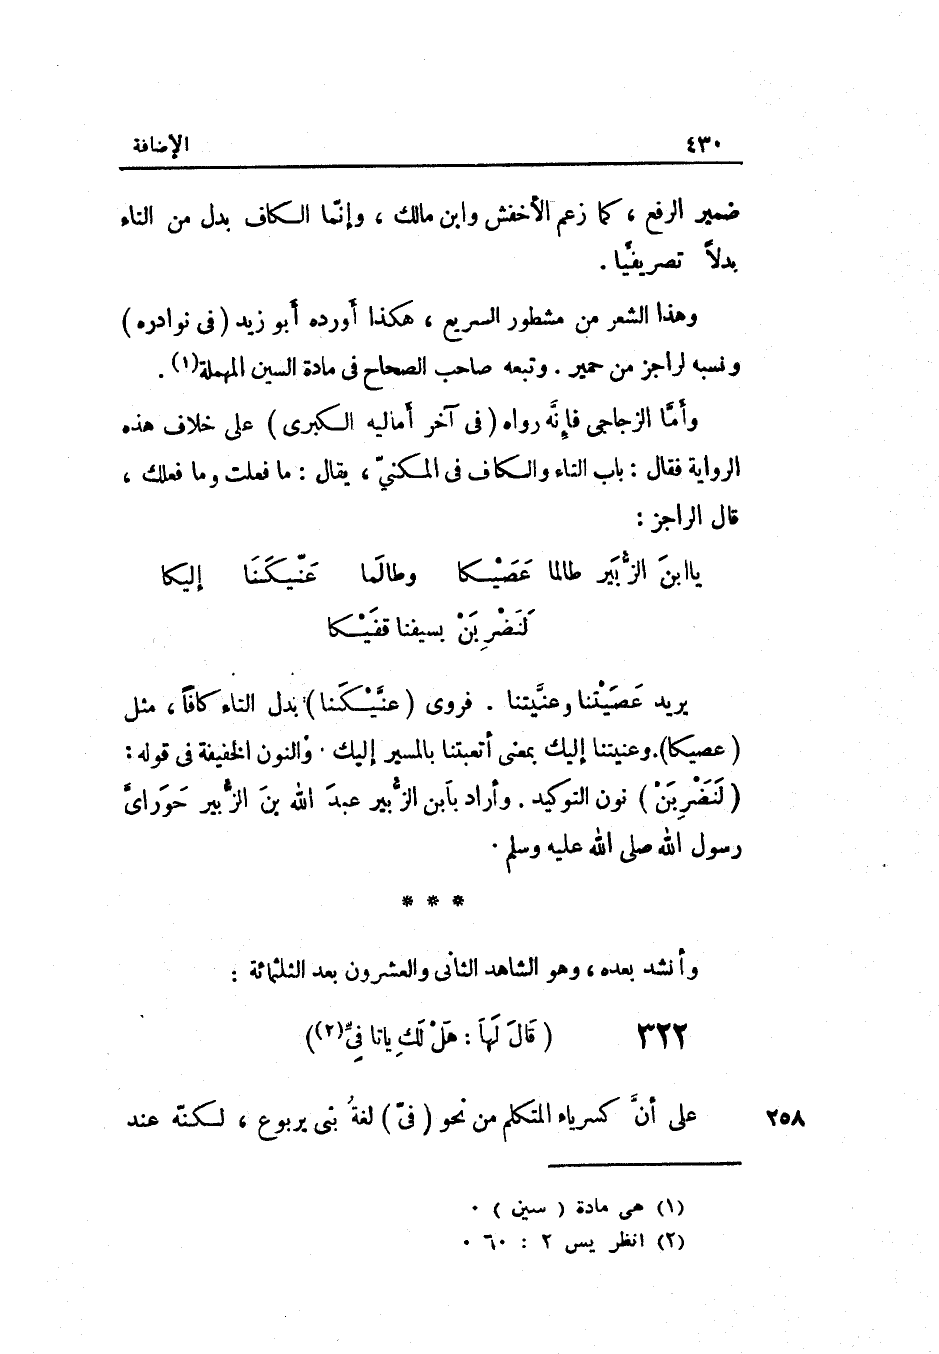 ٤٣٠ الإضافة
ضمير الرفع ، كما زعم الأخفش وابن مالك ، وإنّما الكاف بدل من التاء
بدلاً تصريفيًّا .
وهذا الشعر من مشطور السريع ، هكذا أورده أبو زيد (فى نوادره)
ونسبه لراجز من حمير . وتبعه صاحب الصحاح فى مادة السين المهملة(١) .
وأمَّا الزجاجى فإنَّه رواه (فى آخر أماليه الكبرى) على خلاف هذه
الرواية فقال : باب التاء والكاف فى المكنيّ ، يقال : ما فعلت وما فعلك ،
قال الراجز :
يا ابنَ الزُّبَير طالما عَصَيْكا وطالَما عَنّيكَنَا إليكا
لَنَضْرِبَنْ بسيفنا قفَيْكا
يريد عَصَيْتنا وعنَّيتنا . فروى (عنَّيْكَنا) بدل التاء كافاً ، مثل
(عصيكا). وعنيتنا إليك بمعنى أتعبتنا بالمسير إليك . والنون الخفيفة فى قوله :
(لَنَضْرِبَنْ) نون التوكيد . وأراد بابن الزُّبير عبدَ الله بنَ الزُّبير حَوَراىَّ
رسول الله صلى الله عليه وسلم .
* * *
وأنشد بعده ، وهو الشاهد الثانى والعشرون بعد الثلثمائة :
٣٢٢ (قَالَ لَهَا : هَلْ لَكِ ياتا فِىِّ(٢))
٢٥٨ على أنَّ كسر ياء المتكلم من نحو (فىّ) لغةُ بنى يربوع ، لكنّه عند
(١) هى مادة (سين) .
(٢) انظر يس ٢ : ٦٠ .